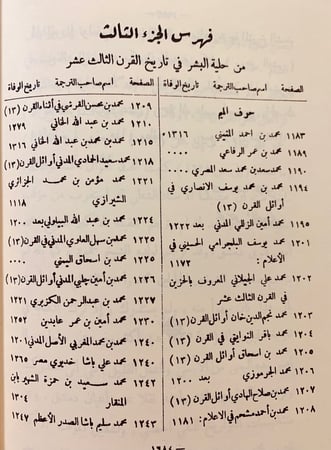 فهرس الجزء الثالث
من حلية البشر في تاريخ القرن الثالث عشر
الصفحة اسم صاحب الترجمة تاريخ الوفاة
حرف الميم
١١٨٣ محمد بن احمد المتيني ١٣١٦
١١٨٩ محمد بن عمر الرفاعي ....
١١٩٣ محمد سعد بن محمد سعد المصري ....
١١٩٤ محمد بن محمد يوسف الانصاري في
اوائل القرن (١٣)
١١٩٥ محمد أمين الزللي المدني بعد ١٢٢٢
١٢٠١ محمد يوسف البلجرامي الحسيني في
الأعلام : ١١٧٢
١٢٠٢ محمد علي الجيلاني المعروف بالحزين
في القرن الثالث عشر
١٢٠٣ محمد نجم الدين خان أوائل القرن (١٣)
١٢٠٤ محمد باقر النوايتي في القرن (١٣)
١٢٠٥ محمد بن اسحاق أوائل القرن (١٣)
١٢٠٦ محمد الجرموزي بعد ١٢٠٠
١٢٠٧ محمد بن صلاح الهادي أوائل القرن (١٣)
١٢٠٨ محمد بن احمد مشحم في الاعلام : ١١٨١
الصفحة اسم صاحب الترجمة تاريخ الوفاة
١٢٠٩ محمد بن محسن القرشي في أثناء القرن (١٣)
١٢١١ محمد بن عبد الله الخاني ١٢٧٩
١٢١٦ محمد بن محمد بن عبد الله الخاني (١٣١٦)
١٢١٨ محمد سعيد الحادي المدني أوائل القرن (١٣)
١٢٢١ محمد مؤمن بن محمد الجزائري
الشيرازي ١١١٨
١٢٢٤ محمد بن عبد الله البيدولي بعد ١٢٠٠
١٢٢٥ محمد بن سبل العلوي المدني في القرن (١٣)
١٢٢٥ محمد بن اسحاق اليمني ....
١٢٢٦ محمد بن أمين چلبي المدني أوائل القرن (١٣)
١٢٢٧ محمد بن عبد الرحمن الكزبري ١٢٢١
١٢٣٠ محمد أمين بن عمر عابدين ١٢٥٢
١٢٤٠ محمد بن محمد المغربي الأصل المدني ١٢٠١
١٢٤٠ محمد علي باشا خديوي مصر ١٢٦٥
١٢٤٢ محمد سعيد بن حمزة الشهير بابن
المنقار ١٣٠٤
١٢٤٣ محمد سليم باشا الصدر الأعظم ١٢٤٧
١٦٨٤